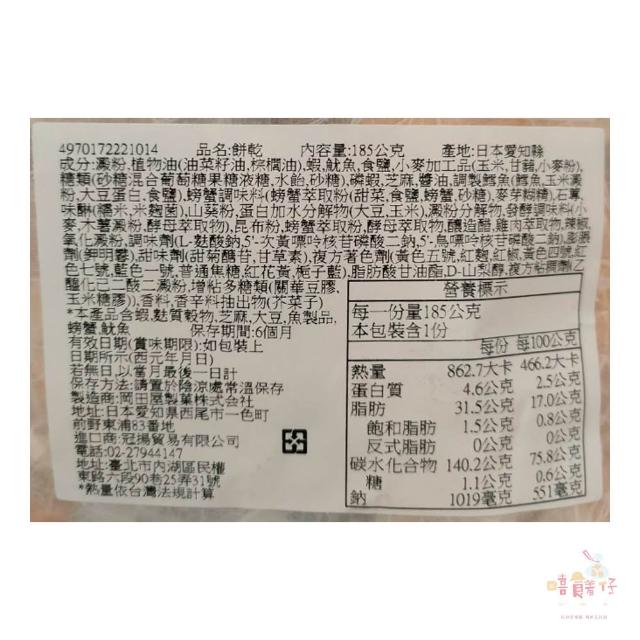 4970172221014 品名:餅乾 內容量:185公克 產地:日本愛知縣
成分:澱粉,植物油(油菜籽油,棕櫚油),蝦,魷魚,食鹽,小麥加工品(玉米,甘藷,小麥粉),
糖類(砂糖混合葡萄糖果糖液糖,水飴,砂糖),磷蝦,芝麻,醬油,調製鱈魚(鱈魚,玉米澱
粉,大豆蛋白,食鹽),螃蟹調味料(螃蟹萃取粉(甜菜,食鹽,螃蟹,砂糖),麥芽糊精),石蓴,
味醂(糯米,米麴菌),山葵粉,蛋白加水分解物(大豆,玉米),澱粉分解物,發酵調味料(小
麥,木薯澱粉,酵母萃取物),昆布粉,螃蟹萃取粉,酵母萃取物,釀造醋,雞肉萃取物,辣椒,
氧化澱粉,調味劑(L-麩酸鈉,5'-次黃嘌呤核苷磷酸二鈉,5'-鳥嘌呤核苷磷酸二鈉),膨脹
劑(鉀明礬),甜味劑(甜菊醣苷,甘草素),複方著色劑(黃色五號,紅麴,紅椒,黃色四號,紅
色七號,藍色一號,普通焦糖,紅花黃,梔子藍),脂肪酸甘油酯,D-山梨醇,複方粘稠劑(乙
醯化己二酸二澱粉,增粘多糖類(關華豆膠,
玉米糖膠)),香料,香辛料抽出物(芥菜子)
*本產品含蝦,麩質穀物,芝麻,大豆,魚製品,
螃蟹,魷魚 保存期間:6個月
有效日期(賞味期限):如包裝上
日期所示(西元年月日)
若無日,以當月最後一日計
保存方法:請置於陰涼處常溫保存
製造商:岡田屋製菓株式会社
地址:日本愛知県西尾市一色町
前野東浦83番地
進口商:冠揚貿易有限公司
電話:02-27944147
地址:臺北市內湖區民權
東路六段90巷25弄31號
*熱量依台灣法規計算
營養標示
每一份量185公克
本包裝含1份
每份 每100公克
熱量 862.7大卡 466.2大卡
蛋白質 4.6公克 2.5公克
脂肪 31.5公克 17.0公克
飽和脂肪 1.5公克 0.8公克
反式脂肪 0公克 0公克
碳水化合物 140.2公克 75.8公克
糖 1.1公克 0.6公克
鈉 1019毫克 551毫克